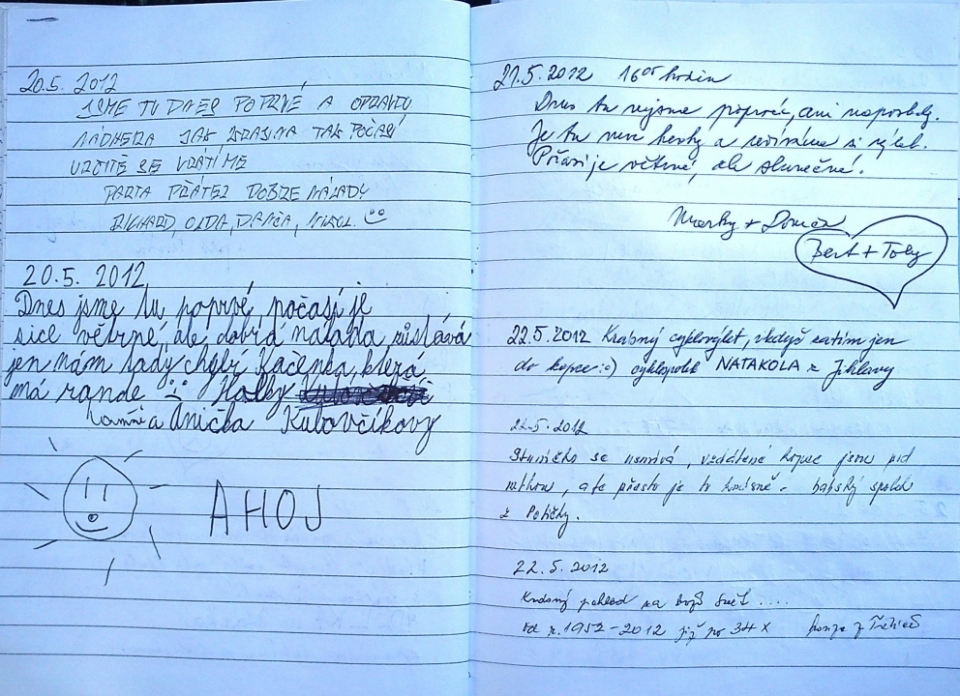 20.5. 2012
JSME TU DNES POPRVÉ A OPRAVDU
NÁDHERA JAK KRAJINA TAK POČASÍ
URČITĚ SE VRÁTÍME
PARTA PŘÁTEL DOBRÉ NÁLADY
RICHARD, OLDA, DANČA,
20.5. 2012
Dnes jsme tu poprvé, počasí je
sice větrné, ale dobrá nálada zůstává
jen nám tady chybí Kačenka, která
má rande Holky
a Anička Kubovčíkovy
AHOJ
21.5.2012 16 05 hodin
Dnes tu nejsme poprvé, ani naposledy.
Je tu moc hezky a užíváme si výlet.
Počasí je větrné, ale slunečné!
Marky + Domča
Bert + Toby
22.5.2012 Krásný cyklovýlet, zatím jen
do kopce :-) cyklospolek NATAKOLA z Jihlavy
22.5.2012
Sluníčko se usmívá, vzdálené kopce jsou pod
mlhou, ale přesto je to krásné - babský spolek
z
22.5.2012
Krásný pohled na boží svět ....
od r. 1952-2012 již po 34x Honza z